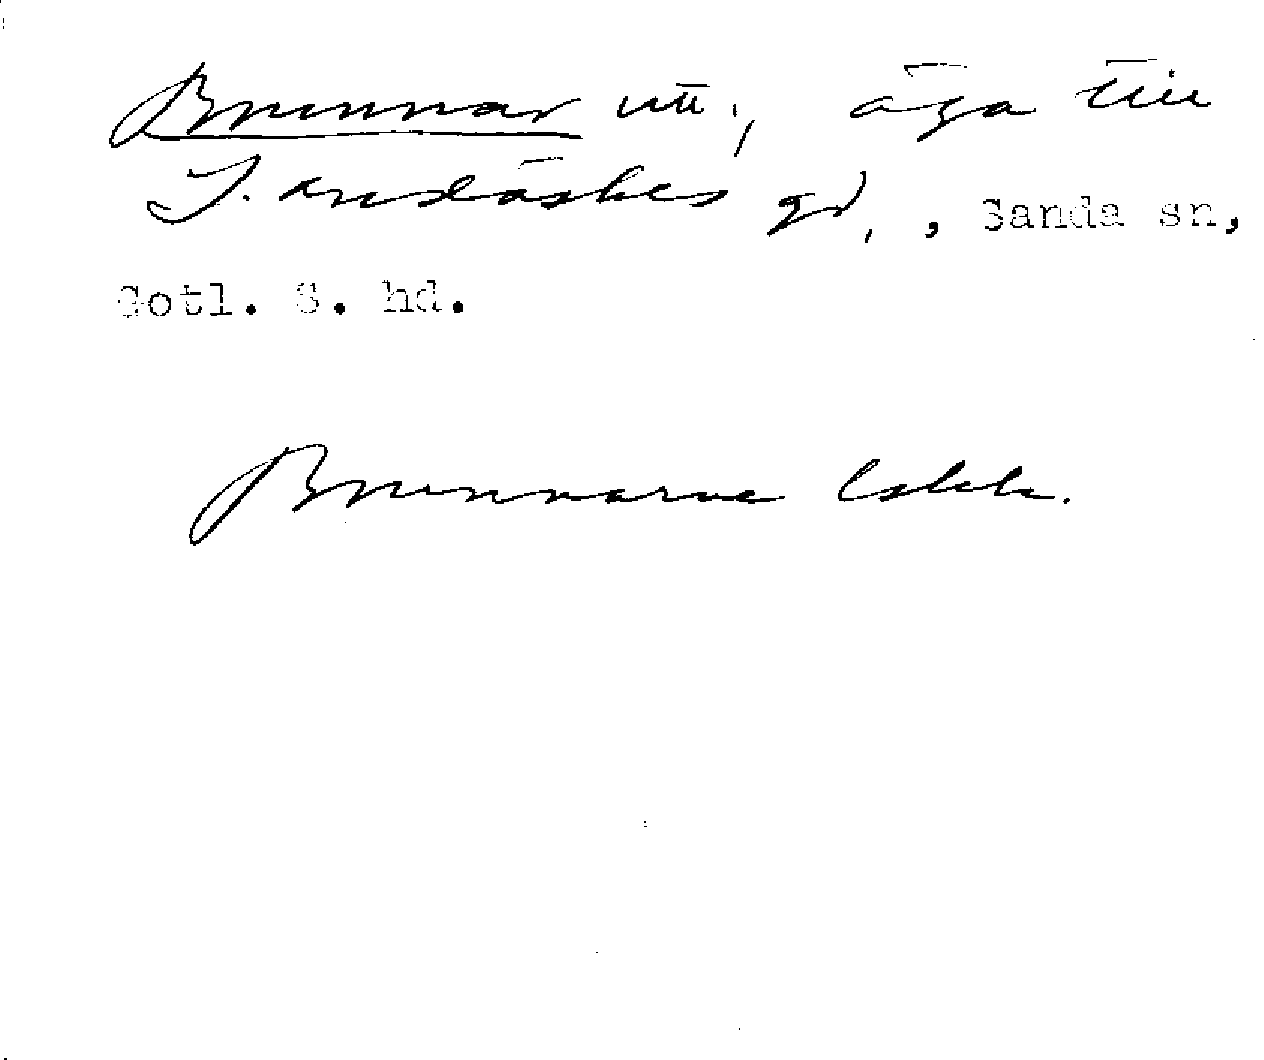 Brunnar utt., äga till
S. Runnåskes gd, , Sanda sn,
Gotl. S. hd.
Brunnarne